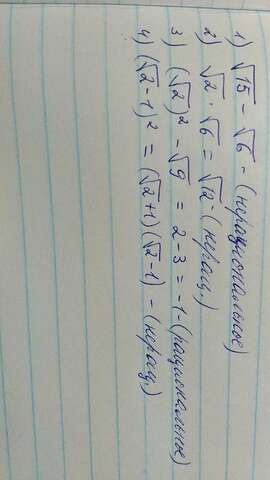 1) √15 - √6 - (нерациональное)
2) √2 · √6 = √12 - (нерац.)
3) (√2)² - √9 = 2 - 3 = -1 - (рациональное)
4) (√2 - 1)² = (√2 + 1)(√2 - 1) - (нерац.)